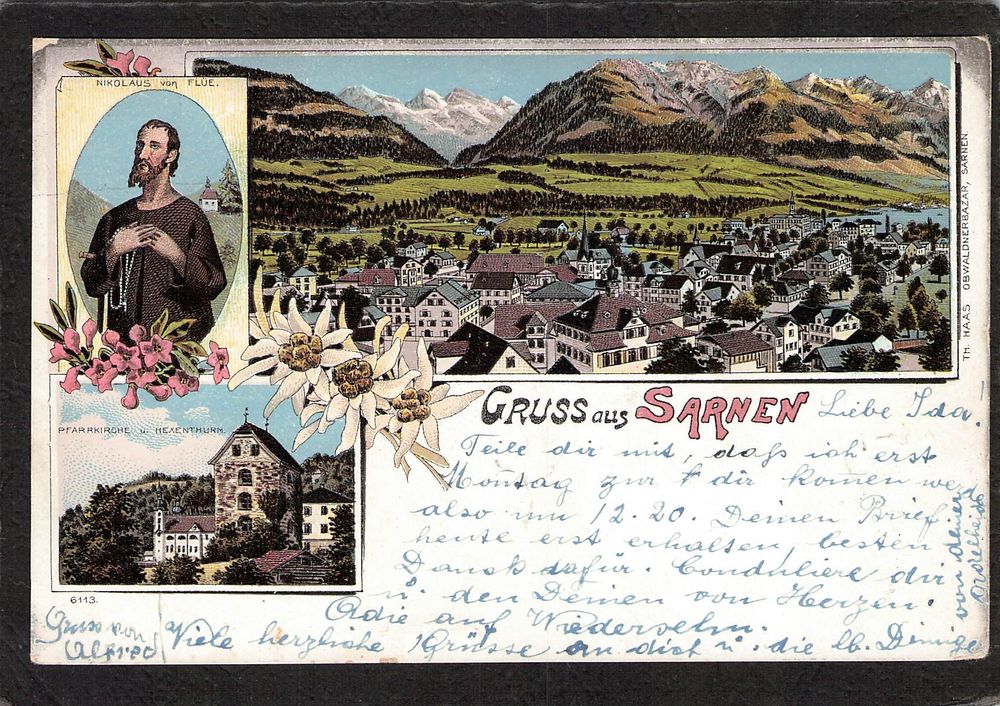 NIKOLAUS von FLÜE.
TH. HAAS OBWALDNERBAZAR, SARNEN.
PFARRKIRCHE u. HEXENTHURM.
6113.
GRUSS aus SARNEN
Liebe Ida
Teile dir mit, daß ich erst
Montag zur dir komen werd
also um 12.20. Deinen Brief
heute erst erhalten, besten
Dank dafür. Conduliere dir
u. den Deinen von Herzen.
Adie auf Wiedersehn.
Viele herzliche Grüsse an dich u. die lb. Deinige
von deiner
Gruss von
Alfred